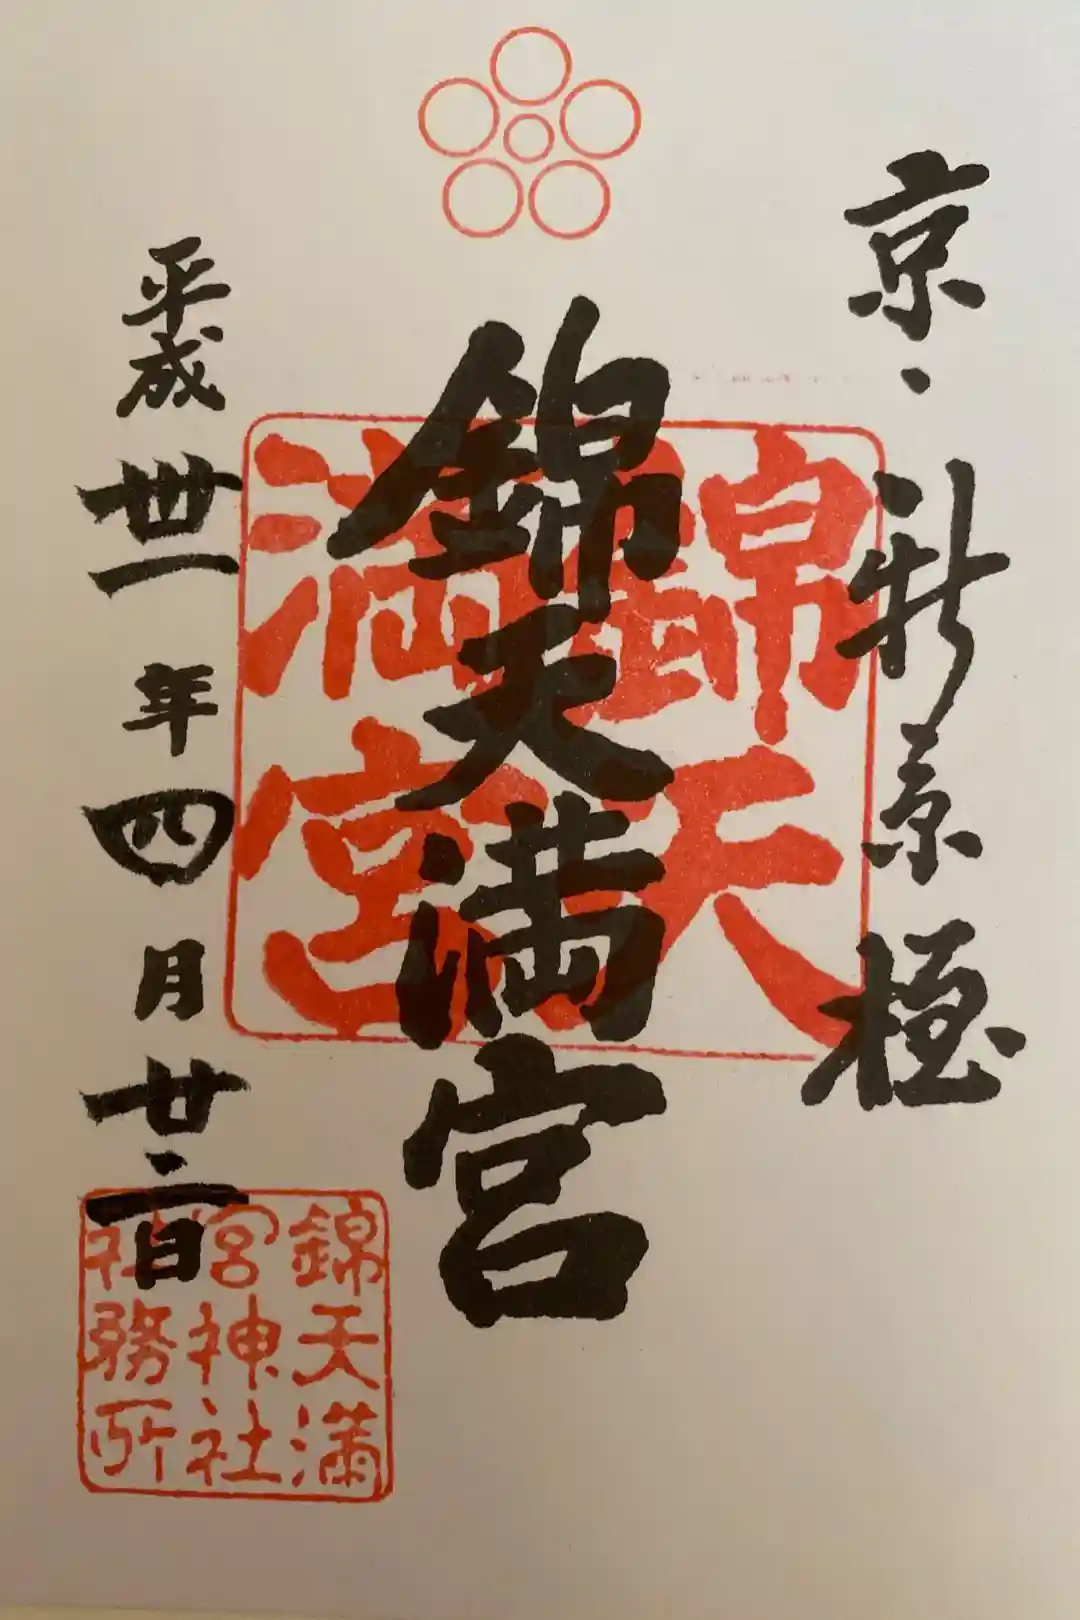 京・新京極
錦天満宮
錦天
満宮
平成卅一年四月廿二日
錦天満
宮神社
社務所